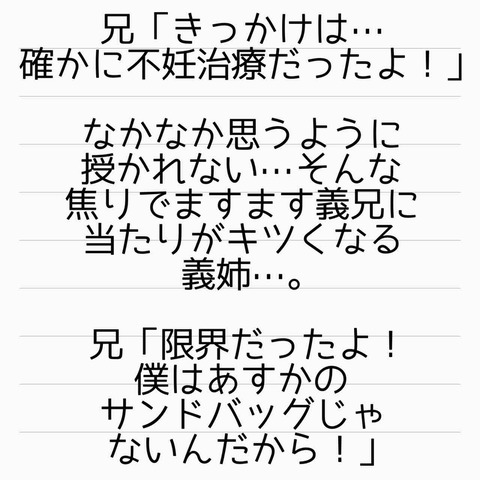 兄「きっかけは…
確かに不妊治療だったよ！」
なかなか思うように
授かれない…そんな
焦りでますます義兄に
当たりがキツくなる
義姉…。
兄「限界だったよ！
僕はあすかの
サンドバッグじゃ
ないんだから！」